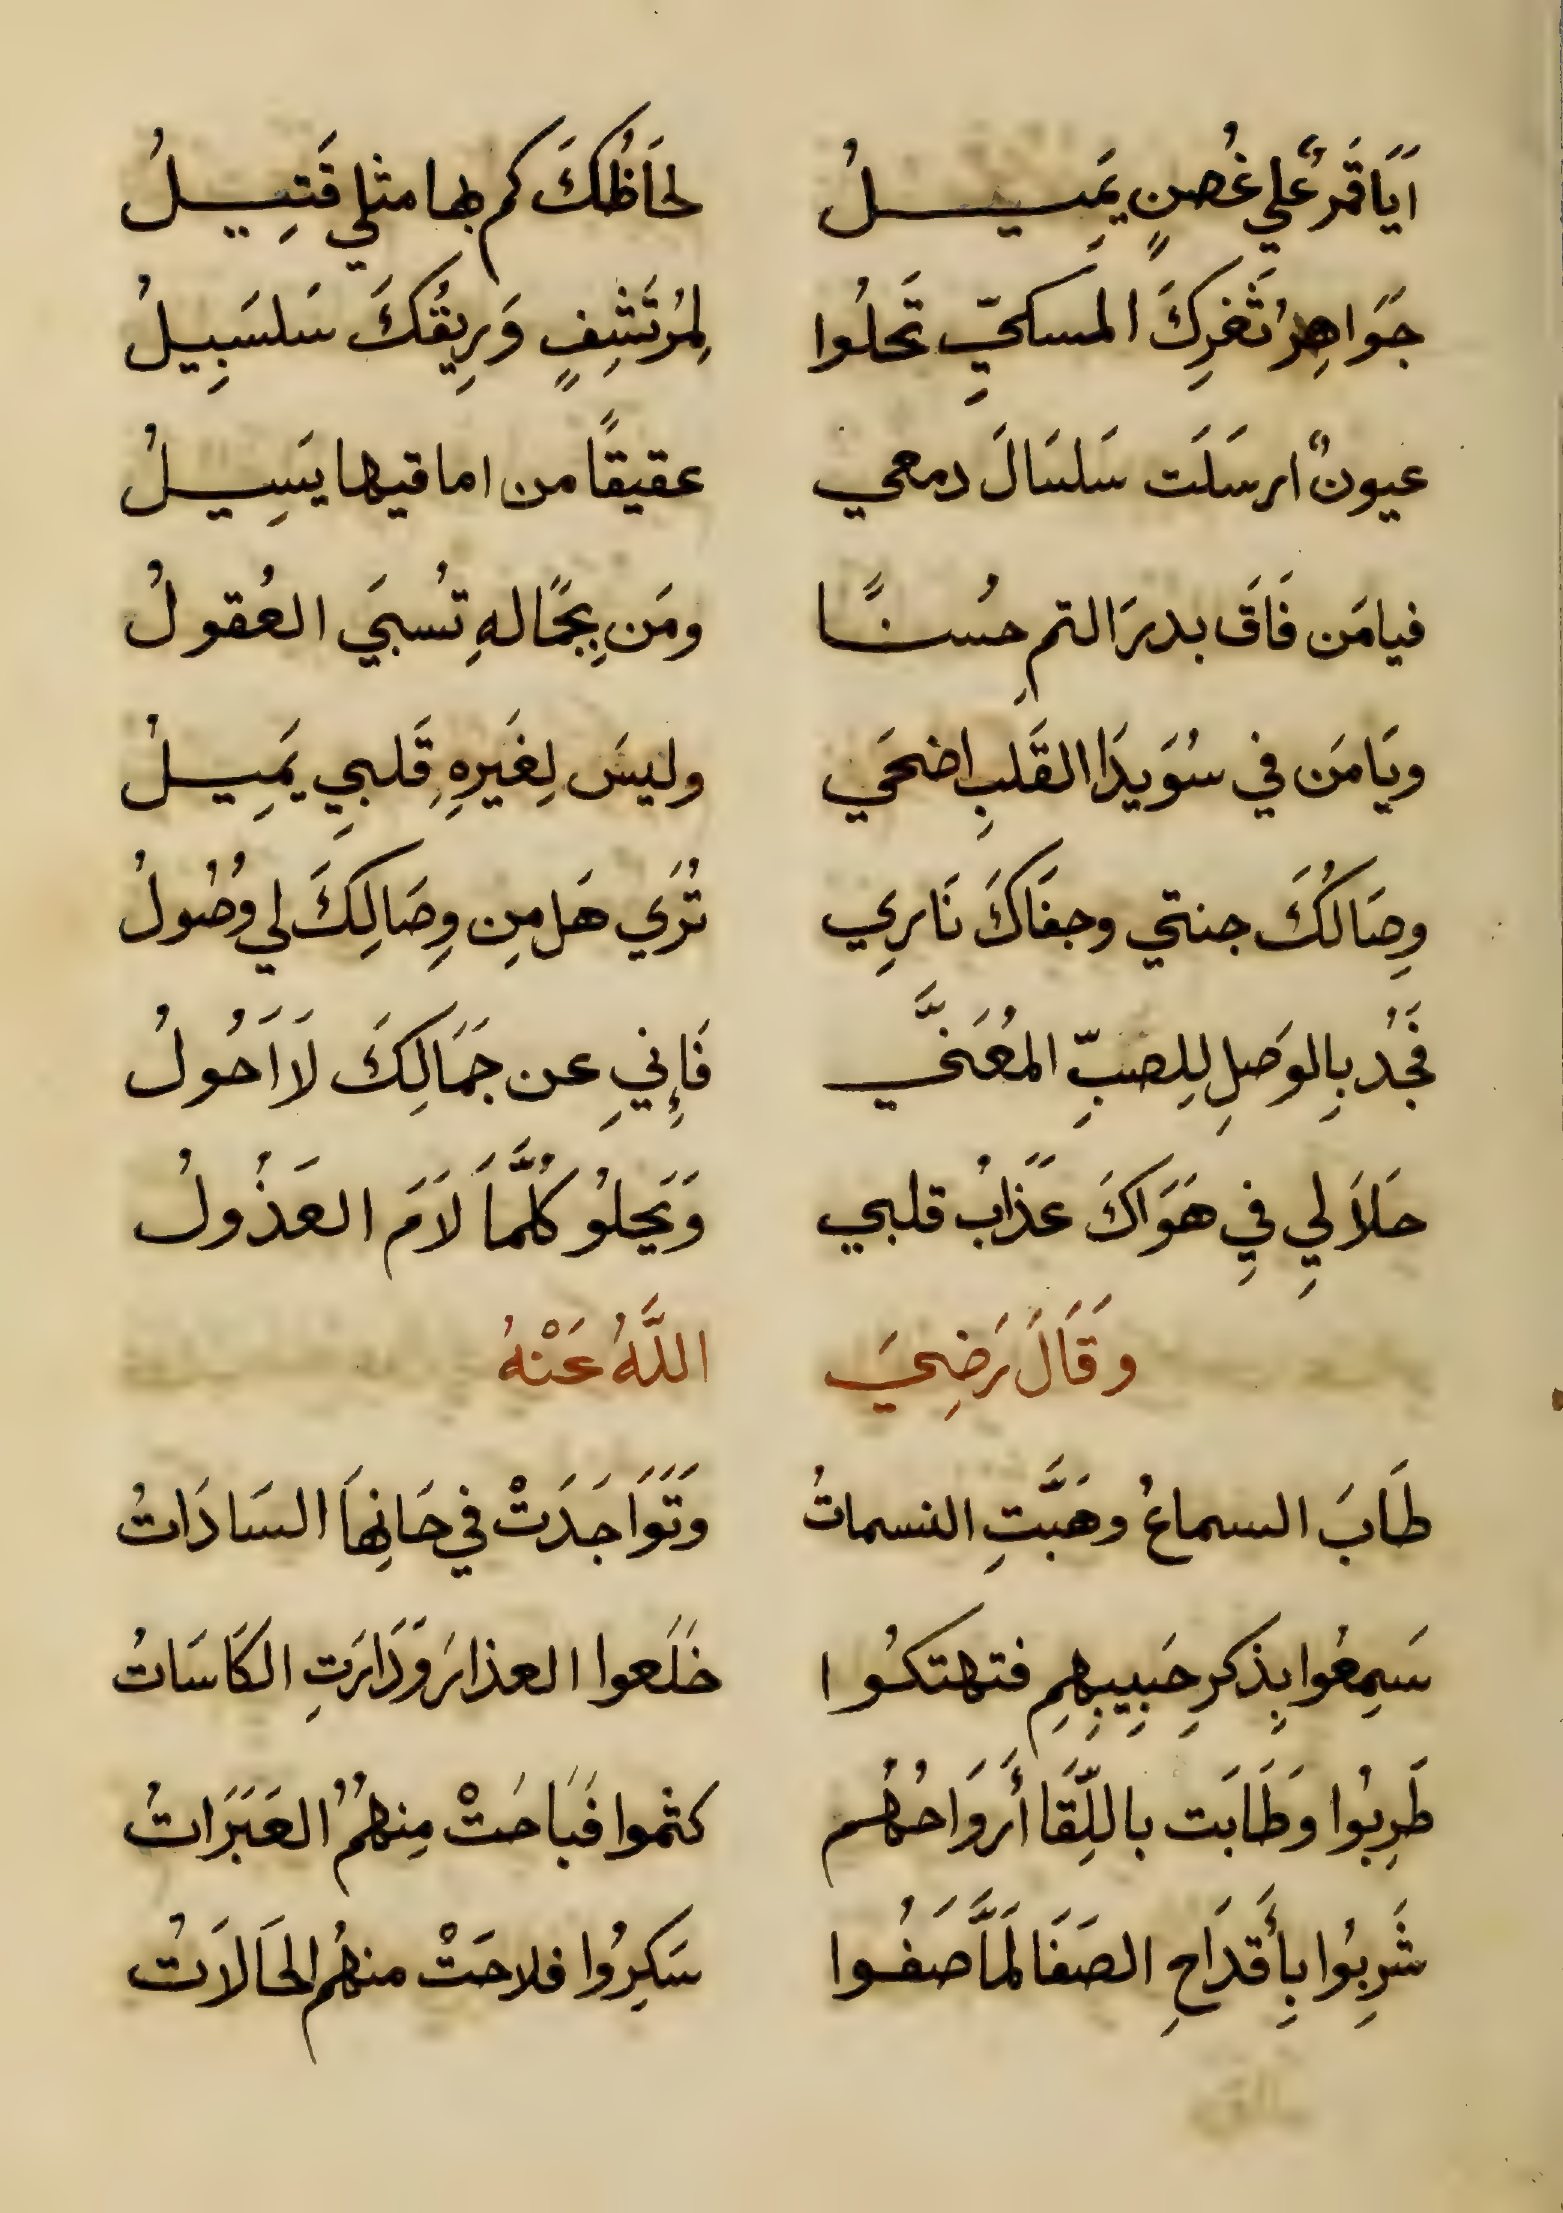 اَيَا قَمَرٌ عَلي غُصنٍ يَمِيـــلُ لحَاظُكَ كم بها مثلي قَتِيـــلُ
جَوَاهِرُ ثَغرِكَ المسكيِّ تَحلُوا لِمُرتَشِفٍ وَرِيقُكَ سَلسَبِيلُ
عيونٌ ارسَلَت سَلسَالَ دمعي عقيقًا من اماقيها يَسِيـلُ
فيا مَن فَاقَ بدرَ التمِ حُسنًا ومَن بِجَمَالهِ تُسبَي العُقولُ
ويَا مَن في سُوَيدَا القَلبِ اضحَي وليسَ لِغَيرِهِ قَلبيِ يَمِيـلُ
وِصَالُكَ جنتي وجفَاكَ نَارِي تُرَي هَل مِن وِصَالِكَ لي وُصُولُ
فَجُد بِالوَصلِ لِلصبِّ المُعَنَّي فَإِنيِ عن جَمَالِكَ لَا اَحُولُ
حَلاَ لي فيِ هَوَاكَ عَذَابُ قلبي وَيَحلُو كُلَّمَا لاَمَ العَذُولُ
وَقَالَ رَضِيَ اللَّهُ عَنْهُ
طَابَ السماعُ وهَبَّتِ النسماتُ وَتَوَاجَدَتْ في حَانِهَا السَادَاتُ
سَمِعُوا بِذكرِ حَبِيبِهِمِ فتهتكُوا خَلَعوا العذارَ وَدَارَتِ الكَاسَاتُ
طَرِبُوا وَطَابَت باللِّقَا أَروَاحُهُم كتموا فَبَاحَتْ مِنهُمُ العَبَرَاتُ
شَرِبُوا بِأَقدَاحِ الصَفَا لَمَّا صَفُوا سَكِرُوا فلاحَتْ منهُم الحَالاَتُ